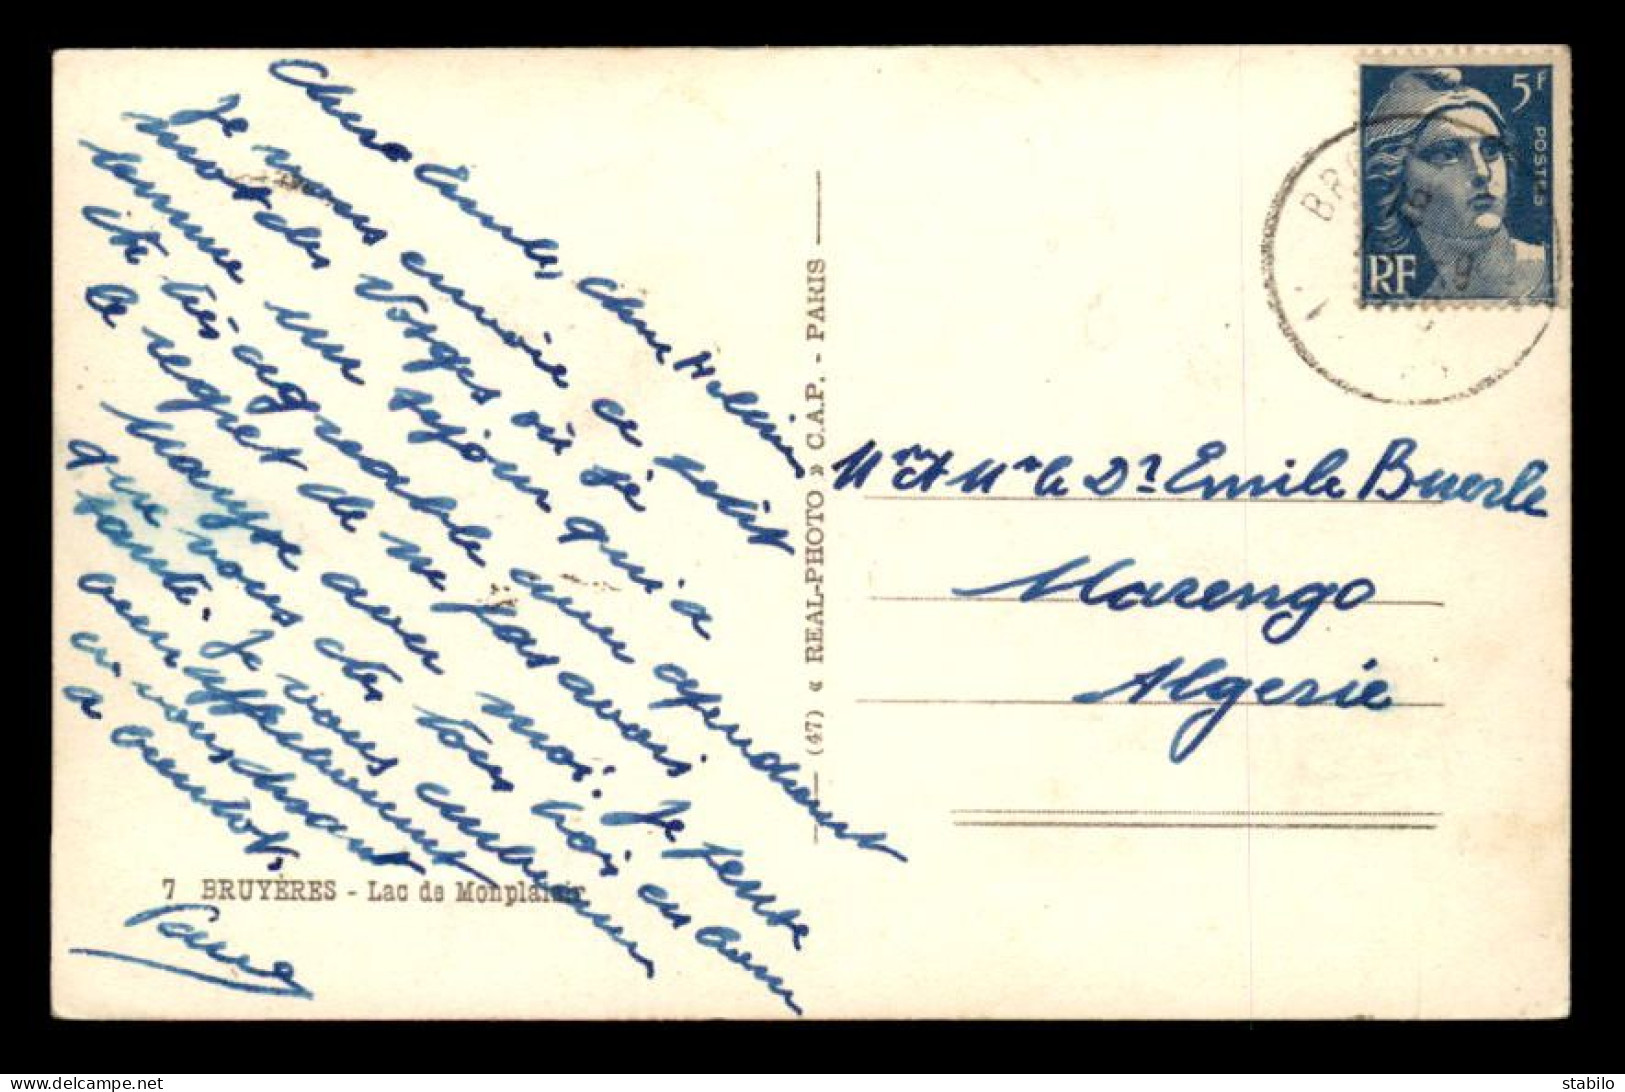 Chère Emile, chère
Je vous envoie ce petit
mot des Vosges où je
termine un séjour qui a
été très agréable avec cependant
le regret de ne pas avoir
Mayse avec moi. Je pense
que vous êtes tous trois en bonne
santé. Je vous embrasse
bien affectueusement
en vous disant
a bientot.
7 BRUYÈRES - Lac de Monplaisir
(47) « REAL-PHOTO » C.A.P. - PARIS
5F
POSTES
RF
Mr et Me le Dr Emile Buerle
Marengo
Algerie
stabilo